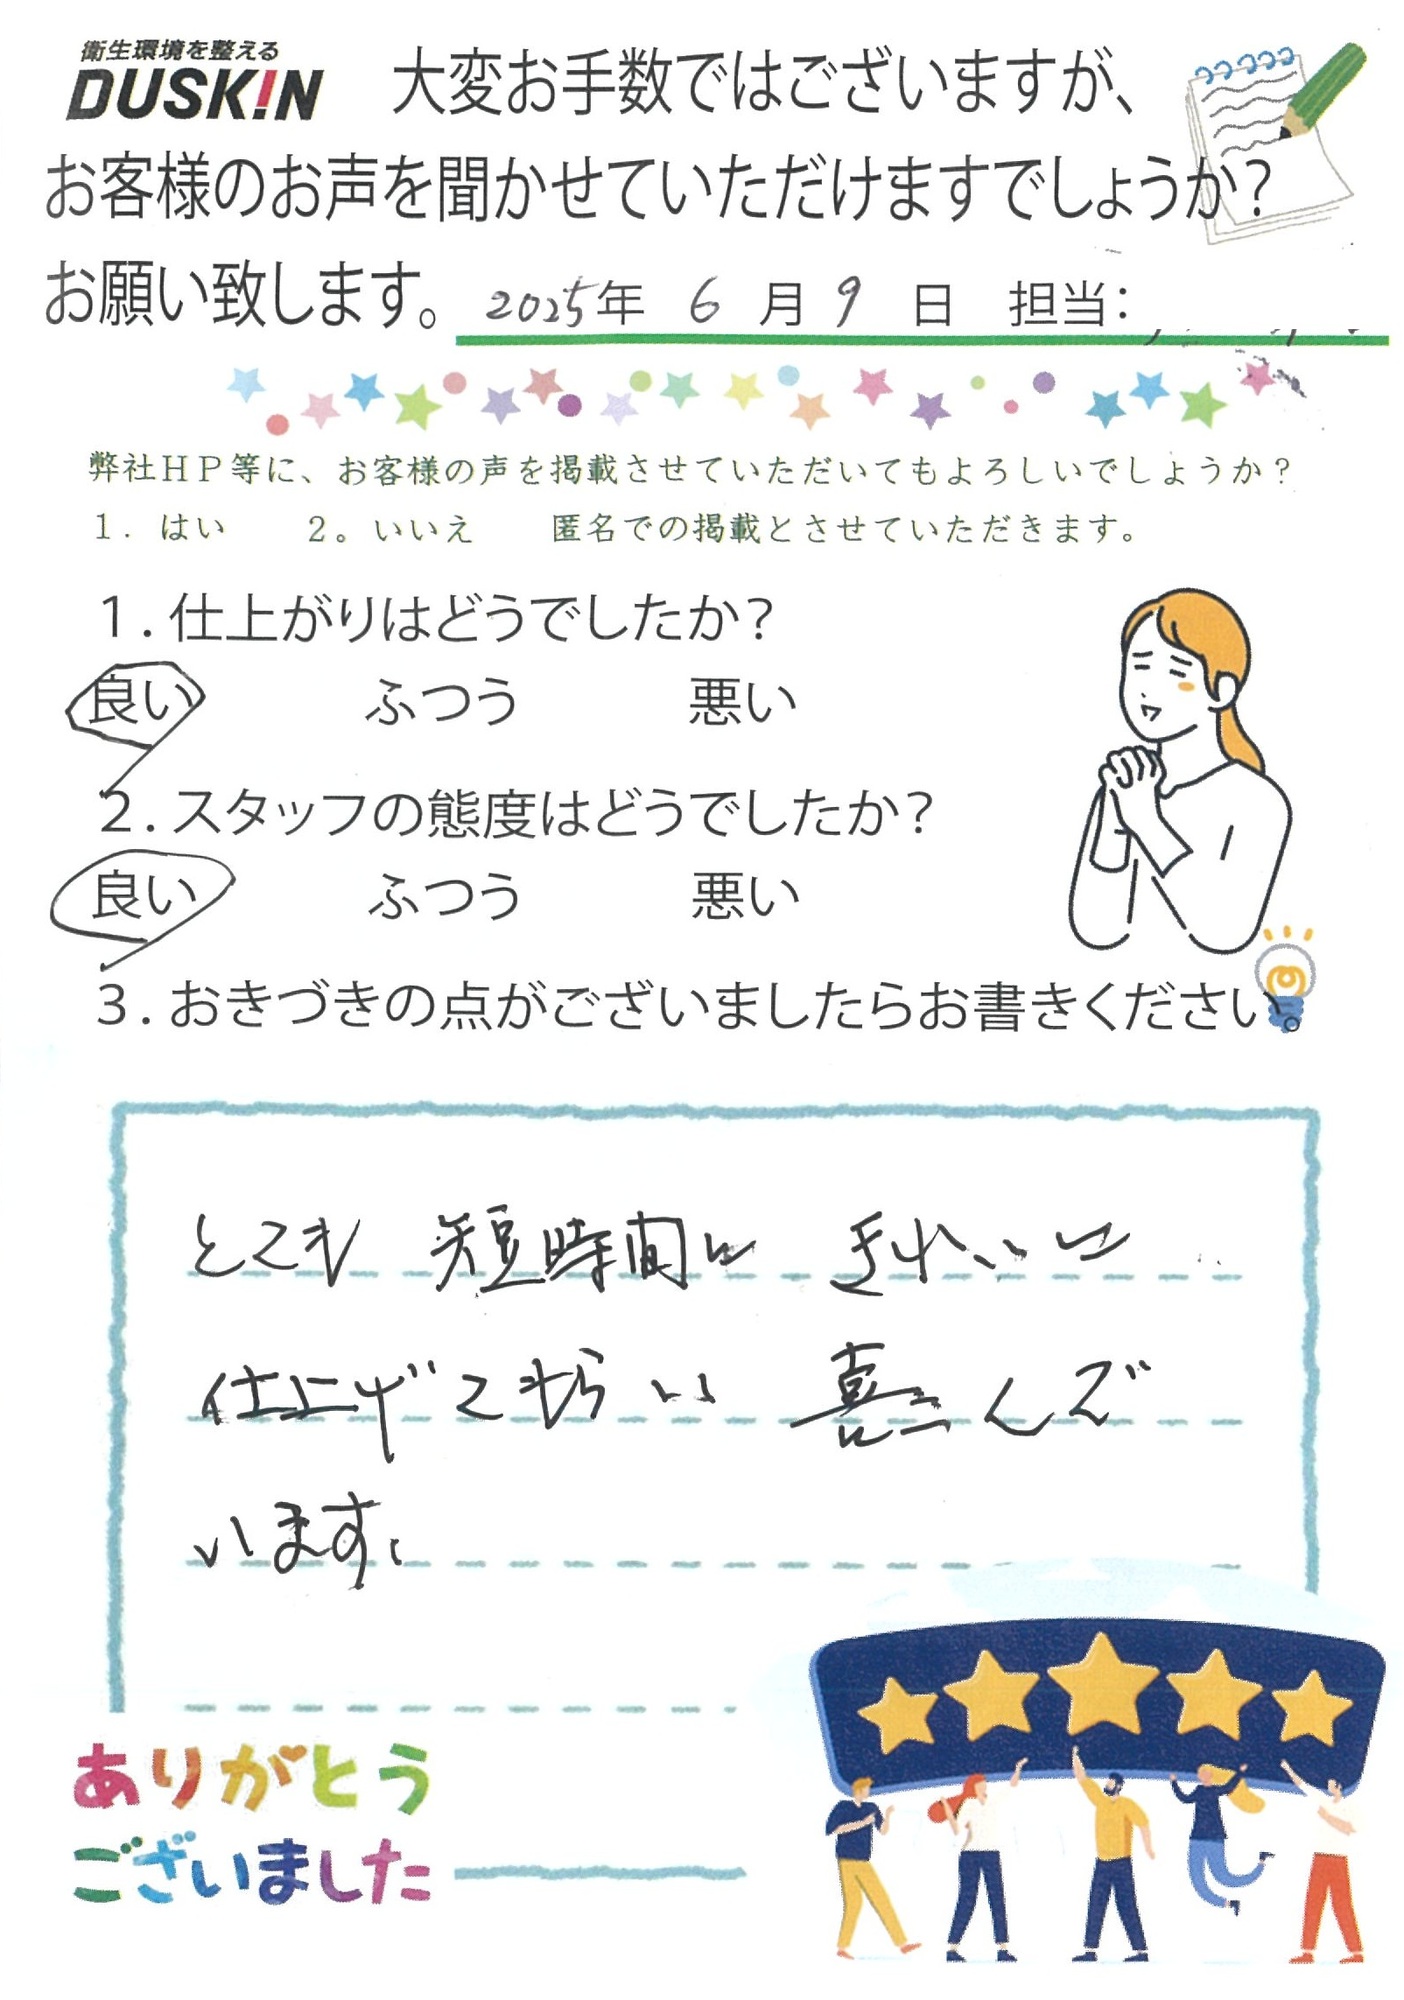 衛生環境を整える
DUSKIN
大変お手数ではございますが、
お客様のお声を聞かせていただけますでしょうか?
お願い致します。 2025年 6 月 9 日 担当:
弊社HP等に、お客様の声を掲載させていただいてもよろしいでしょうか?
1. はい 2。いいえ 匿名での掲載とさせていただきます。
1.仕上がりはどうでしたか?
良い ふつう 悪い
2.スタッフの態度はどうでしたか?
良い ふつう 悪い
3.おきづきの点がございましたらお書きください。
とても 短時間に きれいに
仕上げてもらい 喜んで
います。
ありがとう
ございました